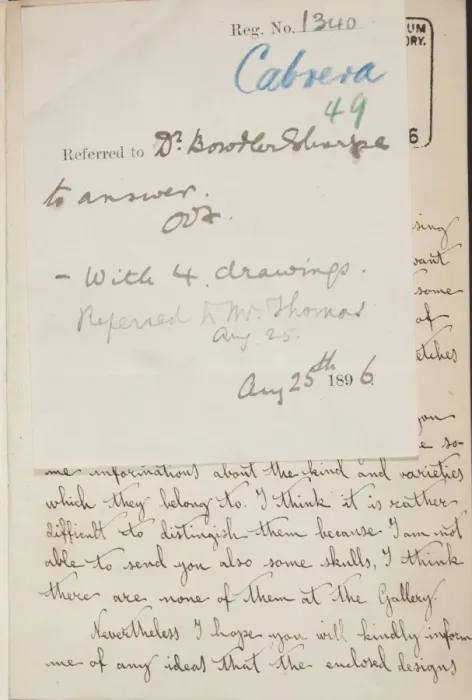 Reg. No. 1340
UM
ORY.
Cabrera
49
6
Referred to Dr. Bowdler Sharpe
to answer.
- With 4 drawings.
Referred to Mr. Thomas
Aug. 25.
Aug 25th 1896
sing
want
some
of
etches
you
e so-
me informations about the kind and varieties
which they belong to. I think it is rather
difficult to distingish them because I am not
able to send you also some skulls, I think
there are none of them at the Gallery.
Nevertheless I hope you will kindly inform
me of any ideas that the enclosed designs